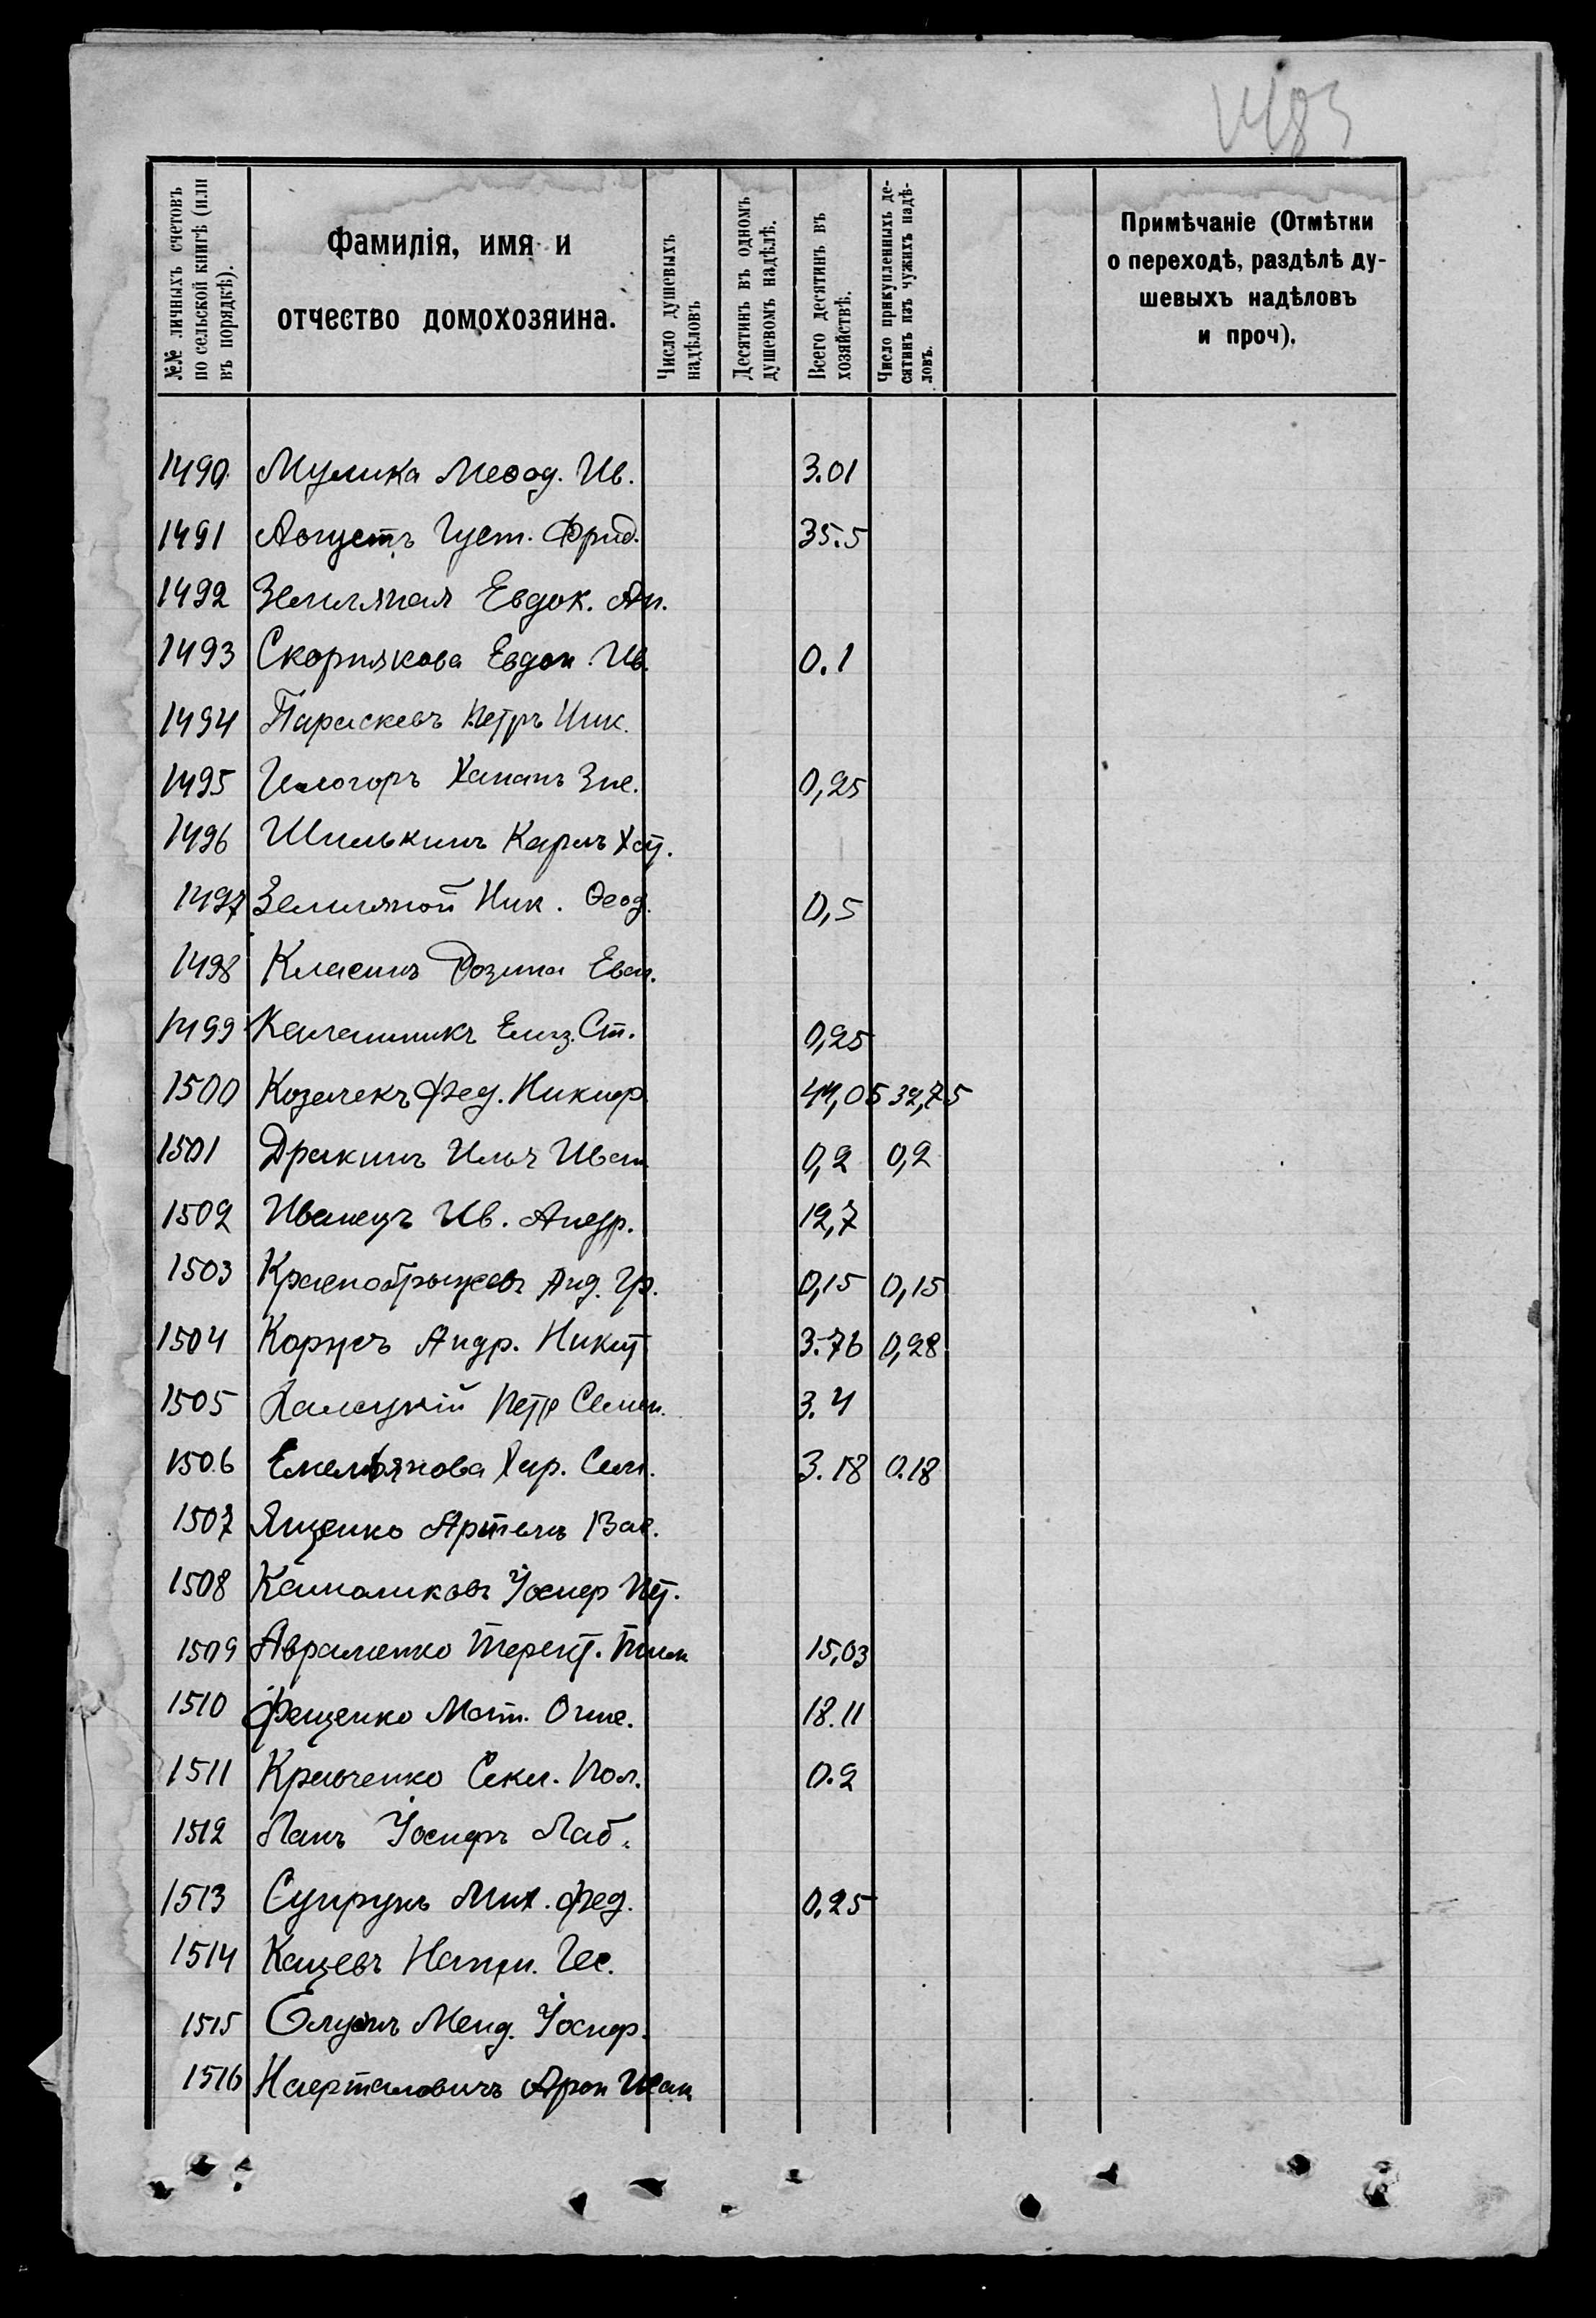 №№ личныхъ счетовъ по сельской книгѣ (или въ порядкѣ).
Фамилія, имя и
отчество домохозяина.
Число душевыхъ надѣловъ
Десятинъ въ одномъ душевомъ надѣлѣ.
Всего десятинъ въ хозяйствѣ.
Число прикупленныхъ десятинъ изъ чужихъ надѣловъ.
Примѣчаніе (Отмѣтки
о переходѣ, раздѣлѣ ду-
шевыхъ надѣловъ
и проч).
1490 Мулика Меѳод. Ив. 3.01
1491 Августъ Густ. Фрид. 35.5
1492 Земляная Евдок. Ан.
1493 Скорнякова Евдок. Ив. 0.1
1494 Параскевъ Петръ Ник.
1495 Хананъ 0,25
1496 Шилькинъ Карлъ
1497 Земляной Ник. Ѳеод. 0,5
1498 Розина
1499 Калашникъ Елиз. Ст. 0,25
1500 Козачекъ Фед. Никиф. 44,05 32,75
1501 Дракинъ Илья Иван. 0,2 0,2
1502 Иванецъ Ив. Андр. 12,7
1503 Краснобрыжевъ Анд. Гр. 0,15 0,15
1504 Корнусъ Андр. Никит 3.76 0,28
1505 Петр Семен. 3.4
1506 Емельянова Хар. Сем. 3.18 0.18
1507 Ященко Артемъ Вас.
1508 Іосиф Пет.
1509 Авраменко Терент. Тим 15,03
1510 Фещенко Мат. 18.11
1511 Кравченко Секл. Пол. 0.2
1512 Ланъ Іосифъ Лаб.
1513 Супрунъ Мих. Фед. 0,25
1514 Кацевъ
1515 Менд. Іосиф.
1516 Нафталовичъ Арон Исак